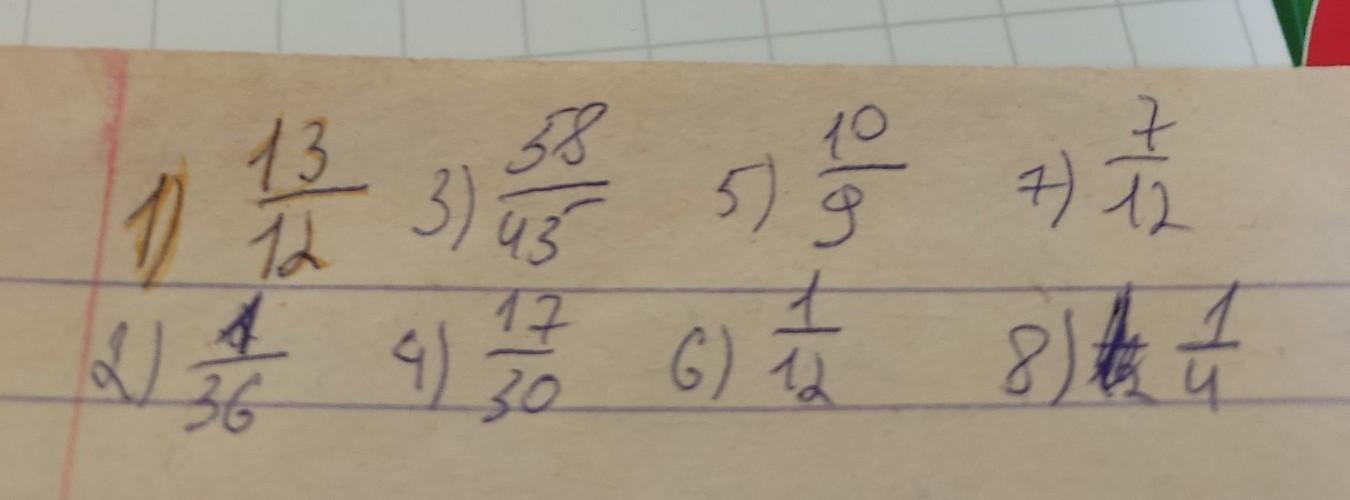 1) 13/12 3) 58/45 5) 10/9 7) 7/12
2) 1/36 4) 17/30 6) 1/12 8) 1/4